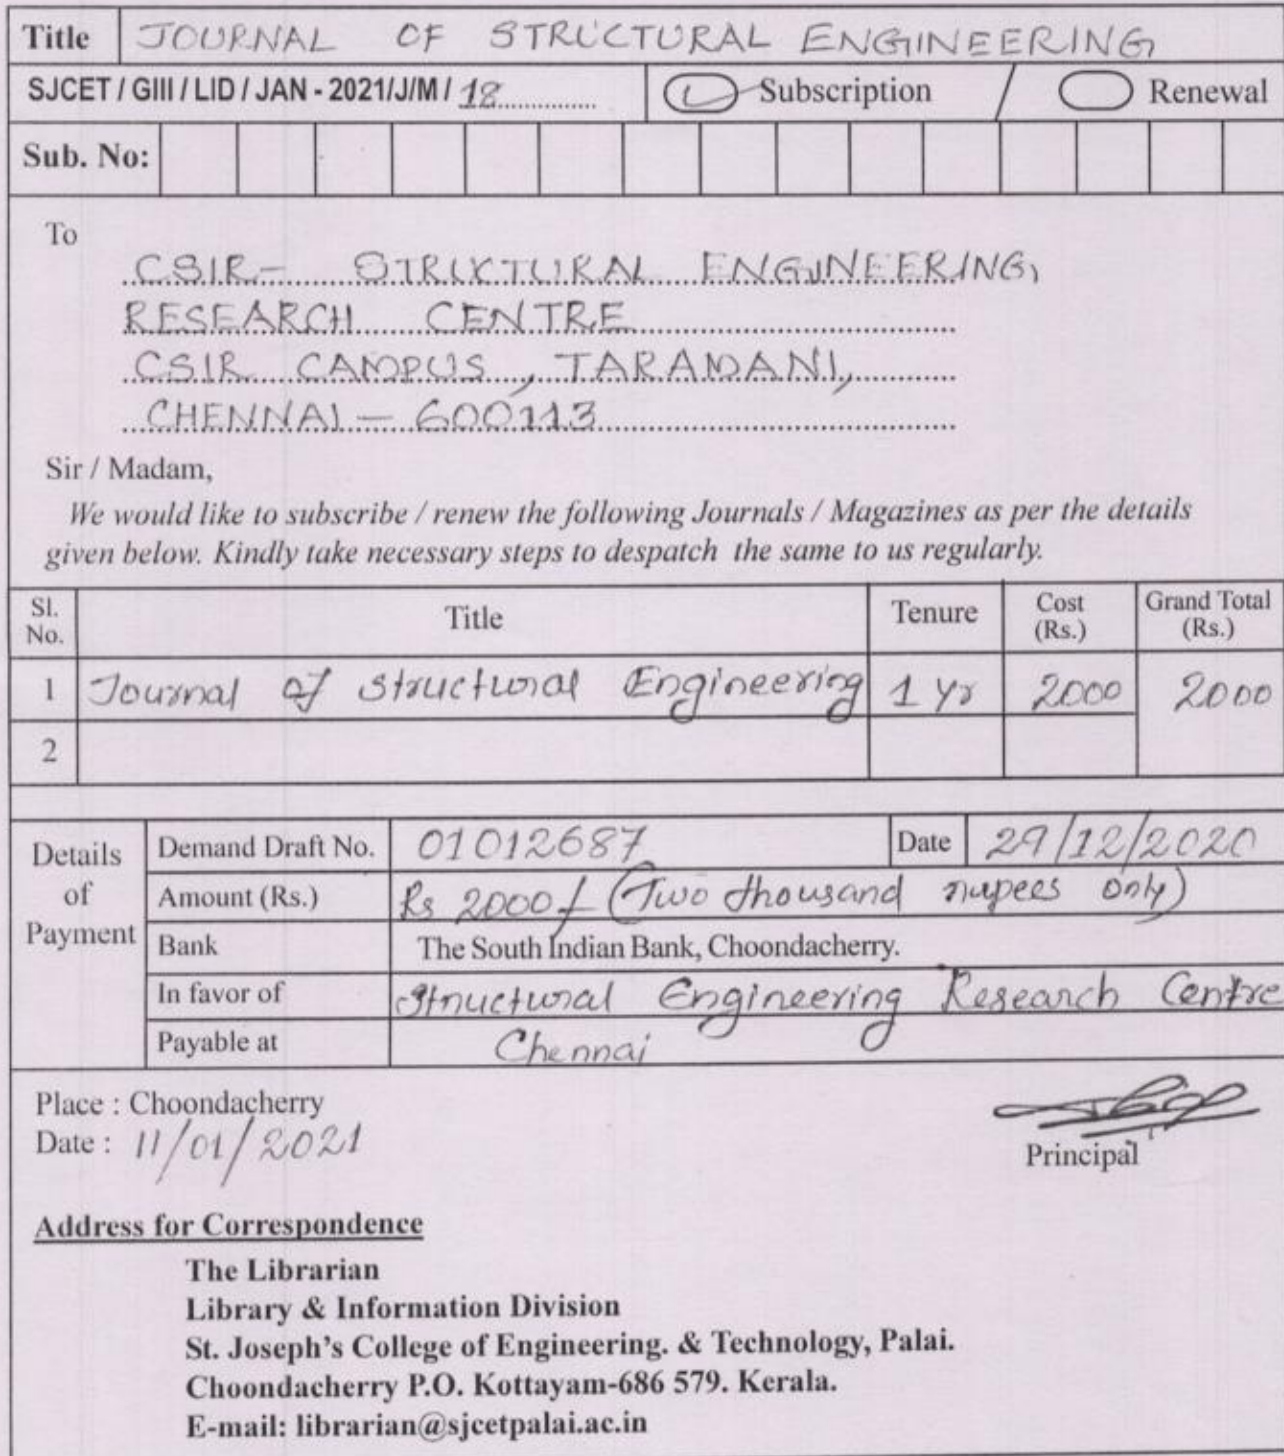 Title JOURNAL OF STRUCTURAL ENGINEERING
SJCET / GIII / LID / JAN - 2021/J/M / 18 Subscription / Renewal
Sub. No:
To
CSIR- STRUCTURAL ENGINEERING,
RESEARCH CENTRE
CSIR CAMPUS, TARAMANI,
CHENNAI - 600113
Sir / Madam,
We would like to subscribe / renew the following Journals / Magazines as per the details
given below. Kindly take necessary steps to despatch the same to us regularly.
Sl. No. Title Tenure Cost (Rs.) Grand Total (Rs.)
1 Journal of Structural Engineering 1 Yr 2000 2000
2
Details of Payment
Demand Draft No. 01012687 Date 29/12/2020
Amount (Rs.) Rs 2000/- (Two thousand rupees only)
Bank The South Indian Bank, Choondacherry.
In favor of Structural Engineering Research Centre
Payable at Chennai
Place : Choondacherry
Date : 11/01/2021
Principal
Address for Correspondence
The Librarian
Library & Information Division
St. Joseph's College of Engineering. & Technology, Palai.
Choondacherry P.O. Kottayam-686 579. Kerala.
E-mail: librarian@sjcetpalai.ac.in